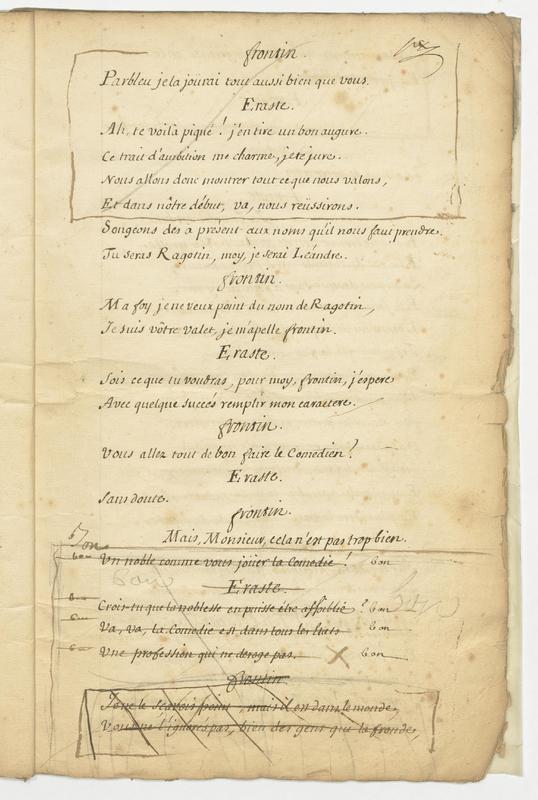 frontin.
Parbleu je la joürai tout aussi bien que vous.
Eraste.
Ah, te voilà piqué! j'en tire un bon augure.
Ce trait d'ambition me charme, je te jure.
Nous allons donc montrer tout ce que nous valons,
Et dans nôtre début, va, nous reüssirons.
Songeons dès à present aux noms qu'il nous faut prendre.
Tu seras Ragotin, moy, je serai Léandre.
frontin.
Ma foy je ne veux point du nom de Ragotin,
Je suis vôtre valet, je m'apelle frontin.
Eraste.
Sois ce que tu voudras, pour moy, frontin, j'espere
Avec quelque succés remplir mon caractere.
frontin.
Vous allez tout de bon faire le Comédien?
Eraste.
Sans doute.
frontin.
Mais, Monsieur, cela n'est pas trop bien.
Bon
bon Un noble comme vous joüer la Comedie! bon
bon
Eraste.
bon Crois-tu que la noblesse en puisse être affoiblie? bon
bon Va, va, la Comedie est dans tous les Etats bon
Une profession qui ne deroge pas. bon
frontin
Je ne le sçavois point, mais il est dans le monde,
Vous ne l'ignorez pas, bien des gens qui la fronde,